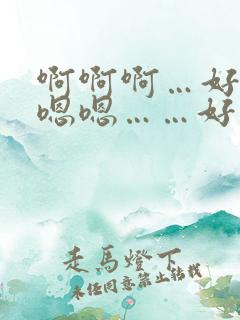 啊啊啊...好
嗯嗯......好
走馬燈下
未经同意禁止转载